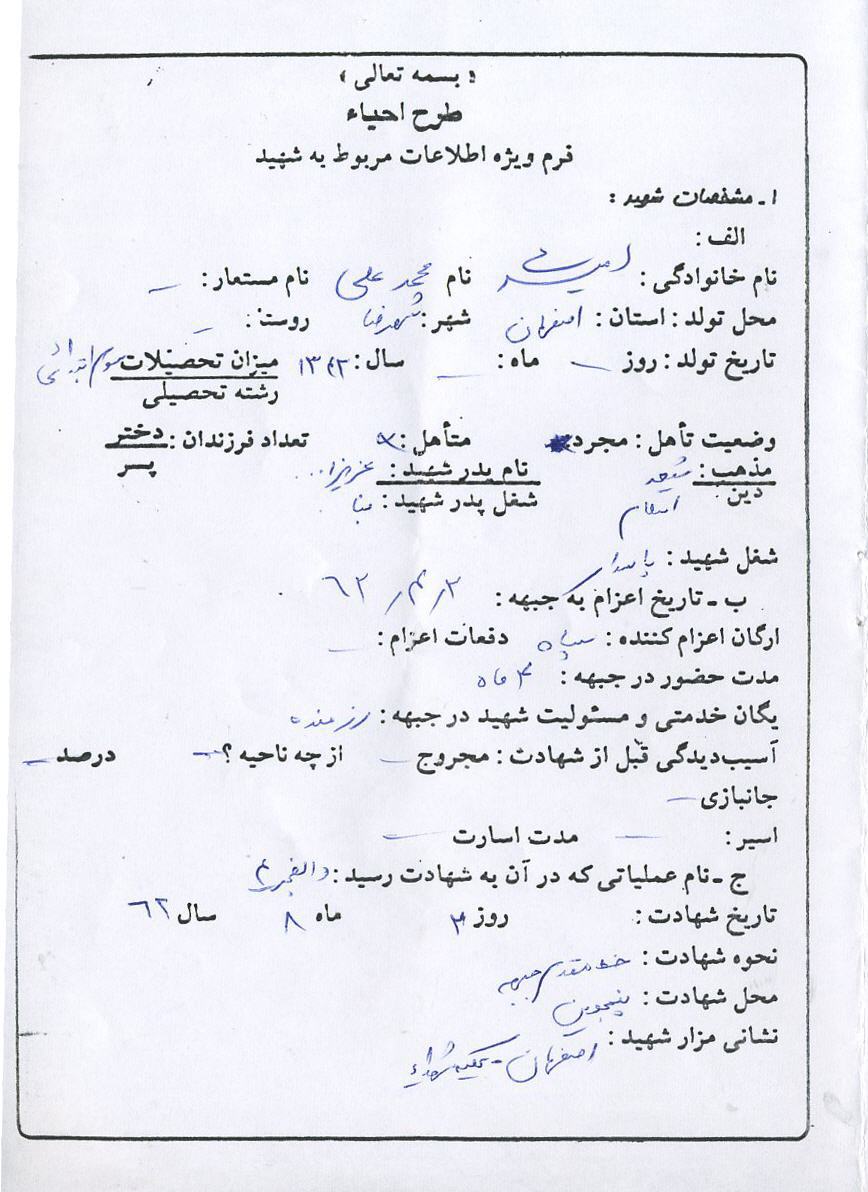 « بسمه تعالی »
طرح احیاء
فرم ویژه اطلاعات مربوط به شهید
۱ـ مشخصات شهید :
الف :
نام خانوادگی : نام محمد علی نام مستعار : ـ
محل تولد : استان : اصفهان شهر : شهرضا روستا : ـ
تاریخ تولد : روز ـ ماه : ـ سال : ۱۳۴۲ میزان تحصیلات سوم ابتدائی
رشته تحصیلی
وضعیت تأهل : مجرد متأهل : × تعداد فرزندان : دختر
پسر
مذهب : شیعه نام پدر شهید : عزیزاله
دین اسلام شغل پدر شهید : بنا
شغل شهید : پاسدار
ب ـ تاریخ اعزام به جبهه : ۲ / ۴ / ۶۲
ارگان اعزام کننده : سپاه دفعات اعزام : ـ
مدت حضور در جبهه : ۴ ماه
یگان خدمتی و مسئولیت شهید در جبهه : رزمنده
آسیب‌دیدگی قبل از شهادت : مجروح ـ از چه ناحیه ؟ ـ درصد ـ
جانبازی ـ
اسیر : ـ مدت اسارت ـ
ج ـ نام عملیاتی که در آن به شهادت رسید : والفجر ۴
تاریخ شهادت : روز ۳ ماه ۸ سال ۶۲
نحوه شهادت : خط مقدم جبهه
محل شهادت : پنجوین
نشانی مزار شهید : اصفهان ـ تکیه شهداء